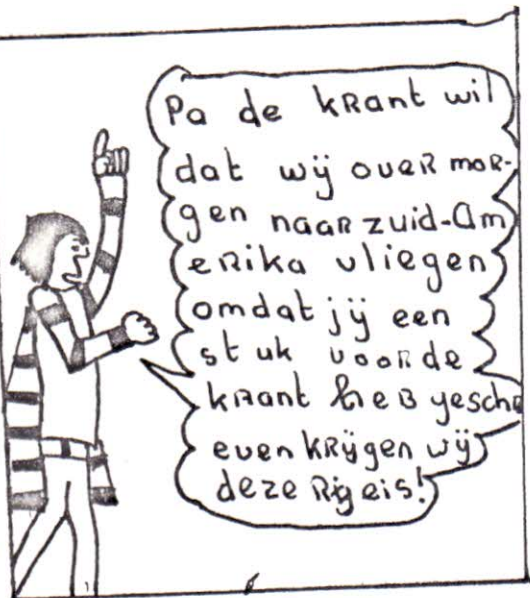 Pa de kRant wil
dat wij oveR moR-
gen naaR zuid-Am
eRika vliegen
omdat jij een
stuk vooR de
kRant heB gesche
even kRijgen wij
deze Rijeis!